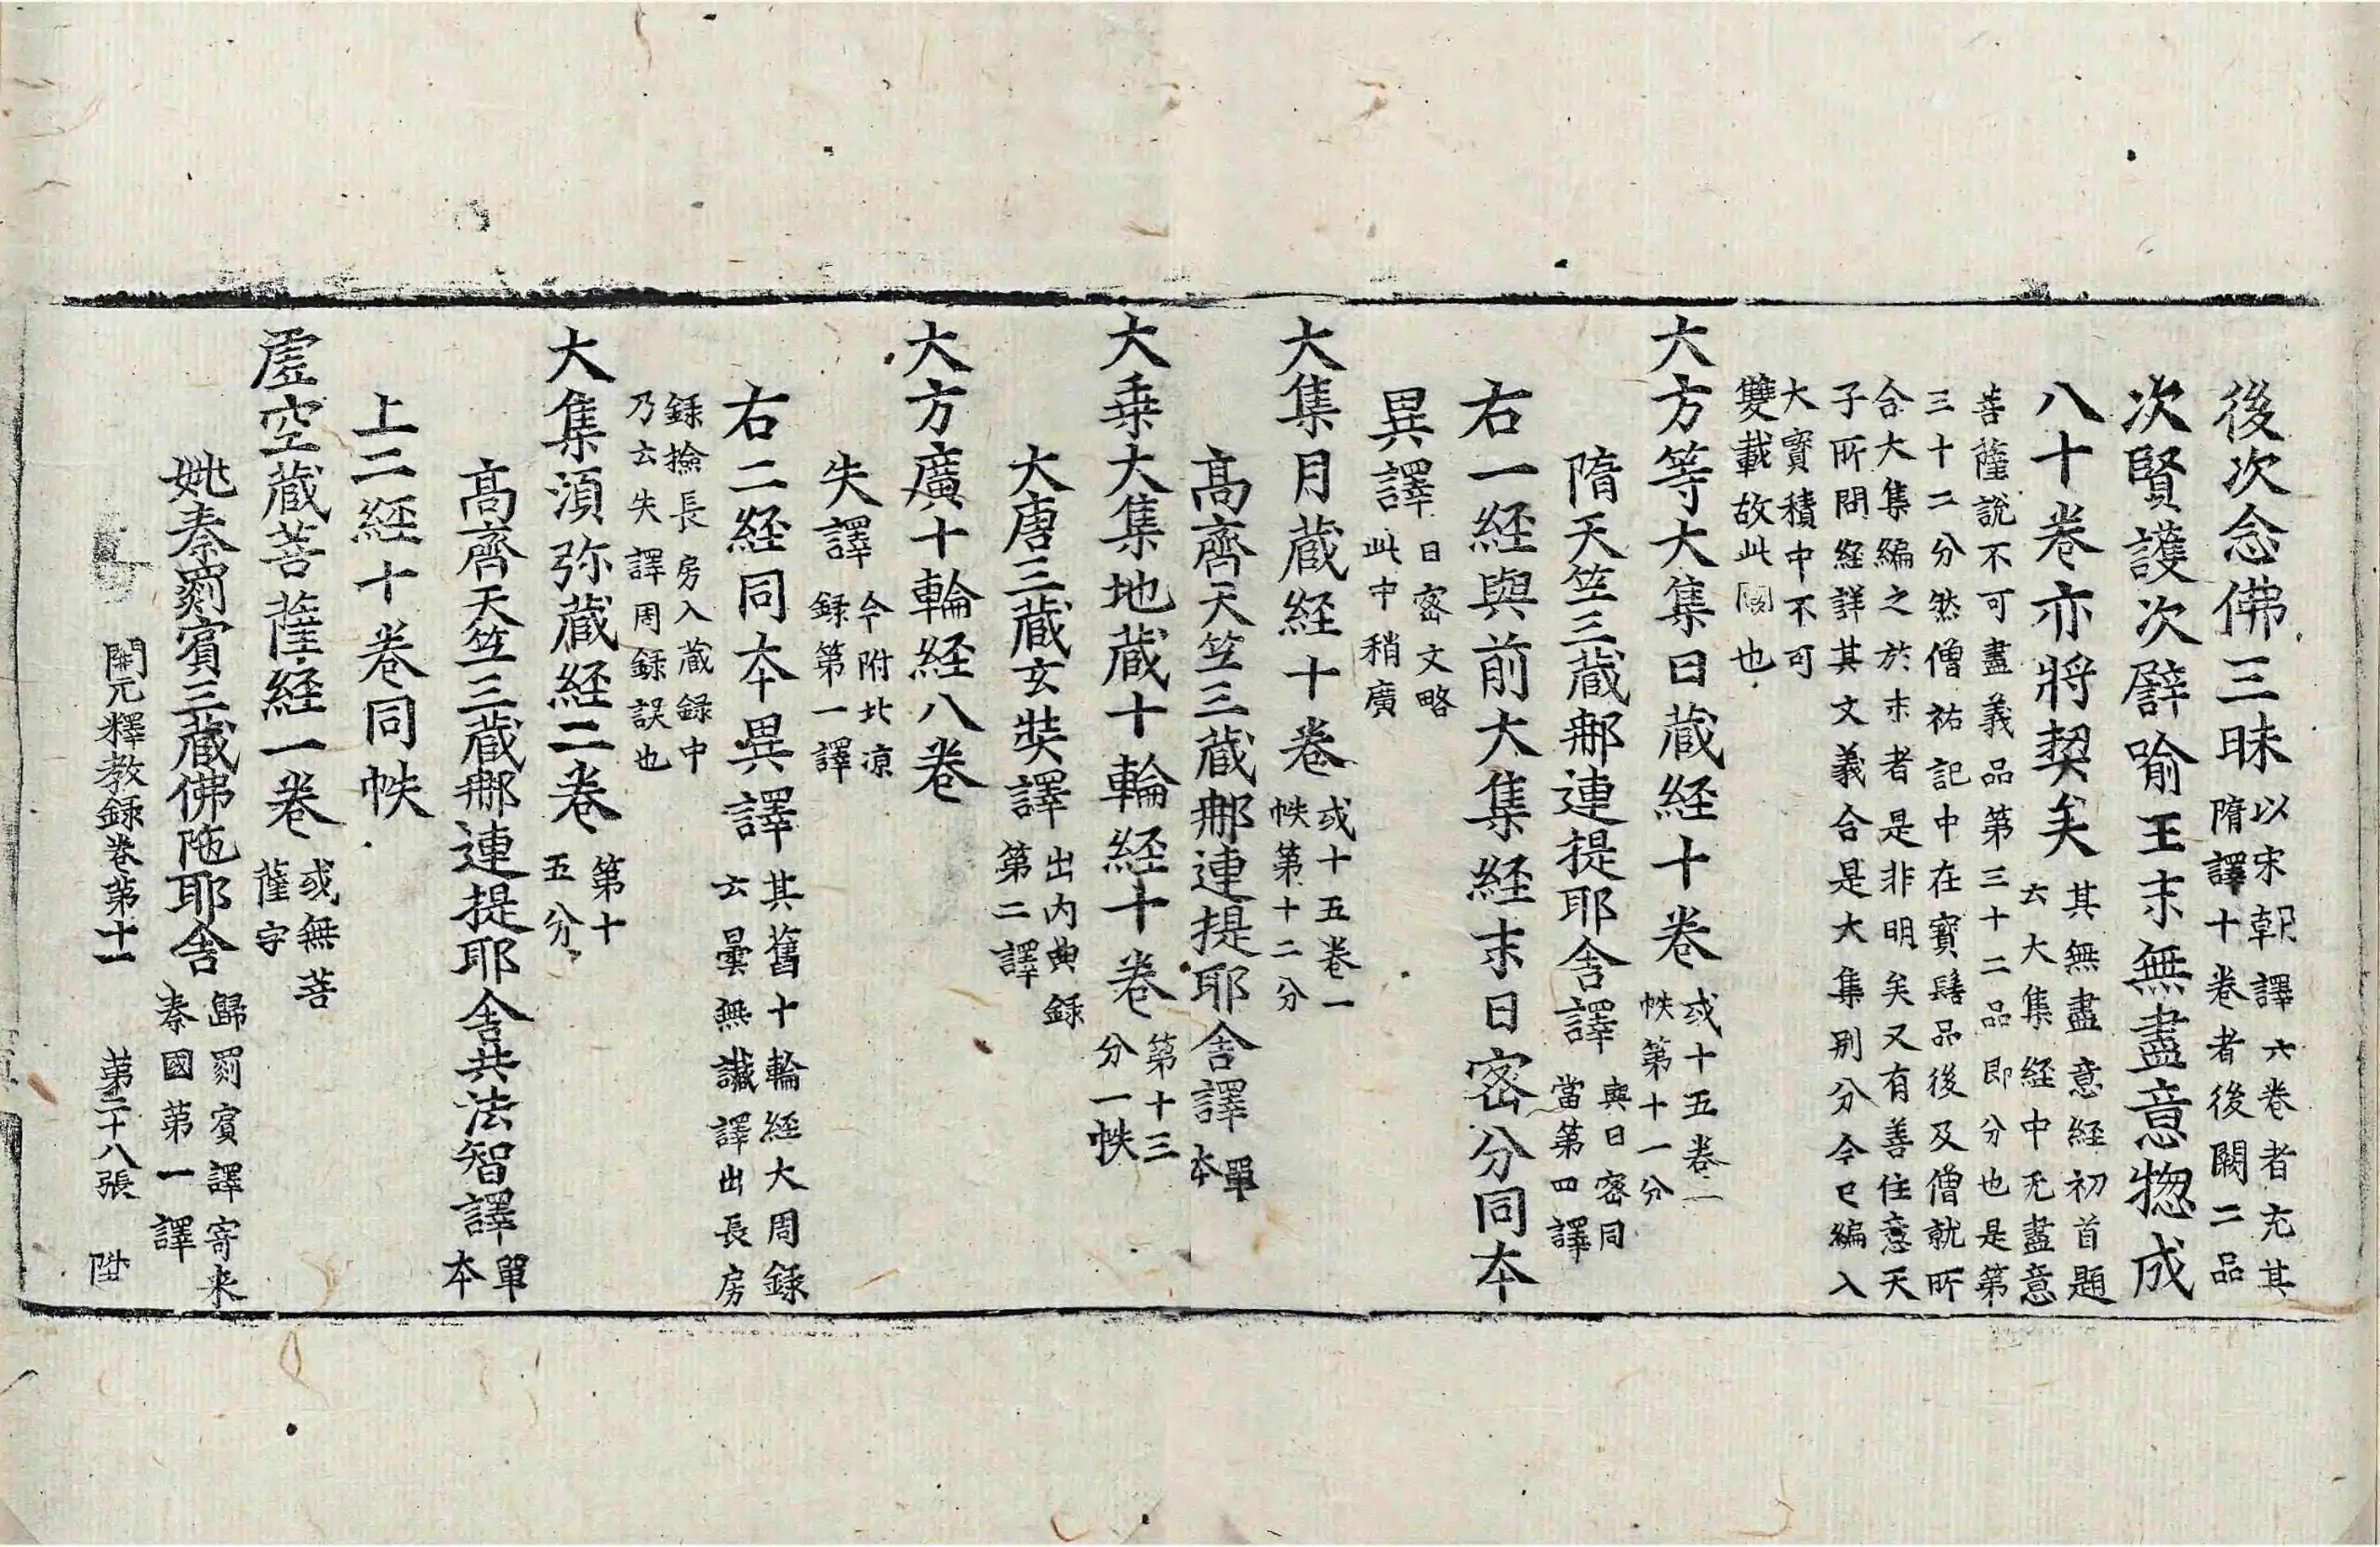 後次念佛三昧以宋朝譯六卷者充其隋譯十卷者後闕二品
次賢護次譬喻王末無盡意揔成
八十卷亦將契矣其無盡意経初首題云大集経中无盡意
菩薩說不可盡義品第三十二品即分也是第
三十二分然僧祐記中在寶髻品後及僧就所
合大集編之於末者是非明矣又有善住意天
子所問経詳其文義合是大集別分今已編入
大寶積中不可
雙載故此闕也
大方等大集日蔵経十卷或十五卷一帙第十一分
隋天笁三蔵那連提耶舍譯與日密同當第四譯
右一経與前大集経末日密分同本
異譯日密文略此中稍廣
大集月蔵経十卷或十五卷一帙第十二分
髙齊天笁三蔵那連提耶舍譯單本
大乗大集地蔵十輪経十卷第十三分一帙
大唐三蔵玄奘譯出内典録第二譯
大方廣十輪経八卷
失譯今附北涼録第一譯
右二経同本異譯其舊十輪経大周録云曇無讖譯出長房
録撿長房入蔵録中
乃云失譯周録誤也
大集湏弥蔵経二卷第十五分
髙齊天笁三蔵那連提耶舍共法智譯單本
上二経十卷同帙
虛空蔵菩薩経一卷或無菩薩字
姚秦罽賓三蔵佛陁耶舍歸罽賓譯寄来秦國第一譯
開元釋教録卷第十一 第二十八張 陞